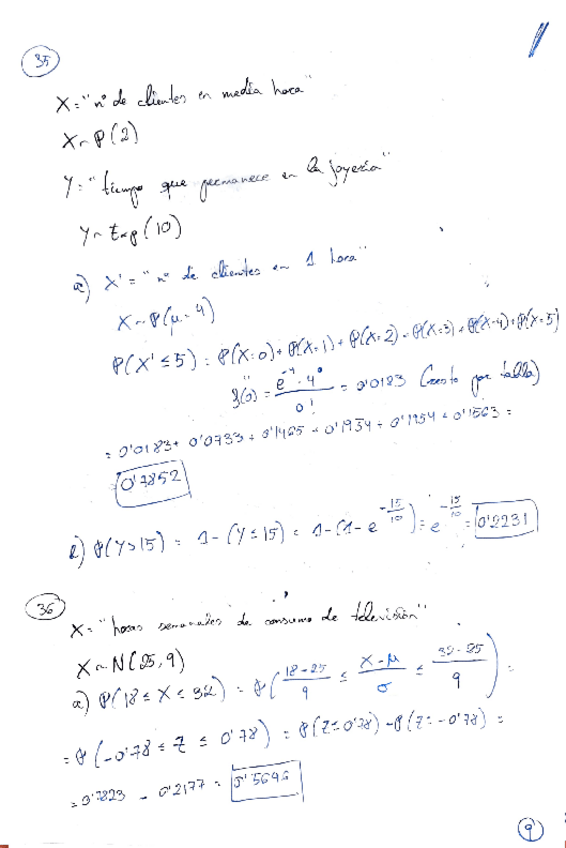 35
X = "nº de clientes en media hora"
X ~ P(2)
Y = "tiempo que permanece en la joyería"
Y ~ Exp(10)
a) X' = "nº de clientes en 1 hora"
X ~ P(μ = 4)
P(X' ≤ 5) = P(X=0) + P(X=1) + P(X=2) + P(X=3) + P(X=4) + P(X=5)
f(0) = e^-4 · 4^0 / 0! = 0'0183 (resto por tabla)
= 0'0183 + 0'0733 + 0'1465 + 0'1954 + 0'1954 + 0'1563 =
0'7852
b) P(Y>15) = 1 - (Y ≤ 15) = 1 - (1 - e^(-15/10)) = e^(-15/10) = 0'2231
36
X = "horas semanales de consumo de televisión"
X ~ N(25, 9)
a) P(18 ≤ X ≤ 32) = P(18-25/9 ≤ X-μ/σ ≤ 32-25/9) =
= P(-0'78 ≤ Z ≤ 0'78) = P(Z ≤ 0'78) - P(Z ≤ -0'78) =
= 0'7823 - 0'2177 = 0'5646
9